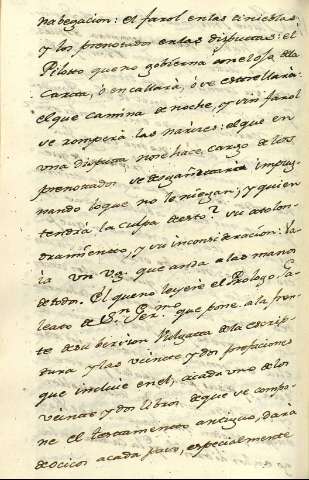 nabegacion: el farol en las tinieblas
y los prenotados en las disputas: el
Piloto que no gobierna con el ojo á la
Carta, ó encallaria, ó se estrellaria:
el que camina de noche, y sin farol
se romperia las narizes: el que en
una disputa no se hace cargo de los
prenotados se desgañitaria impug
nando lo que no le niegan; y quien
tendria la culpa de esto? su atolon
dramiento, y su inconsideracion:
la un que anda a las manos
de todos. El que no leyere el Prologo Ga
leato de Sn. Germo. que pone a la fren
te de su bersion Vulgata de la escrip
tura y las veinte y dos prefaciones
que incluie en el, a cada uno de los
veinte y dos libros de que se compo
ne el testamento antiguo, dará
de ocicos a cada paso, especialmente